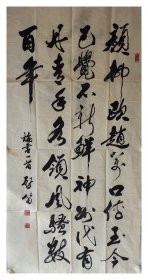 颜柳欧赵万口传至今
已觉不新鲜神州代有
丹青手各领风骚数
百年